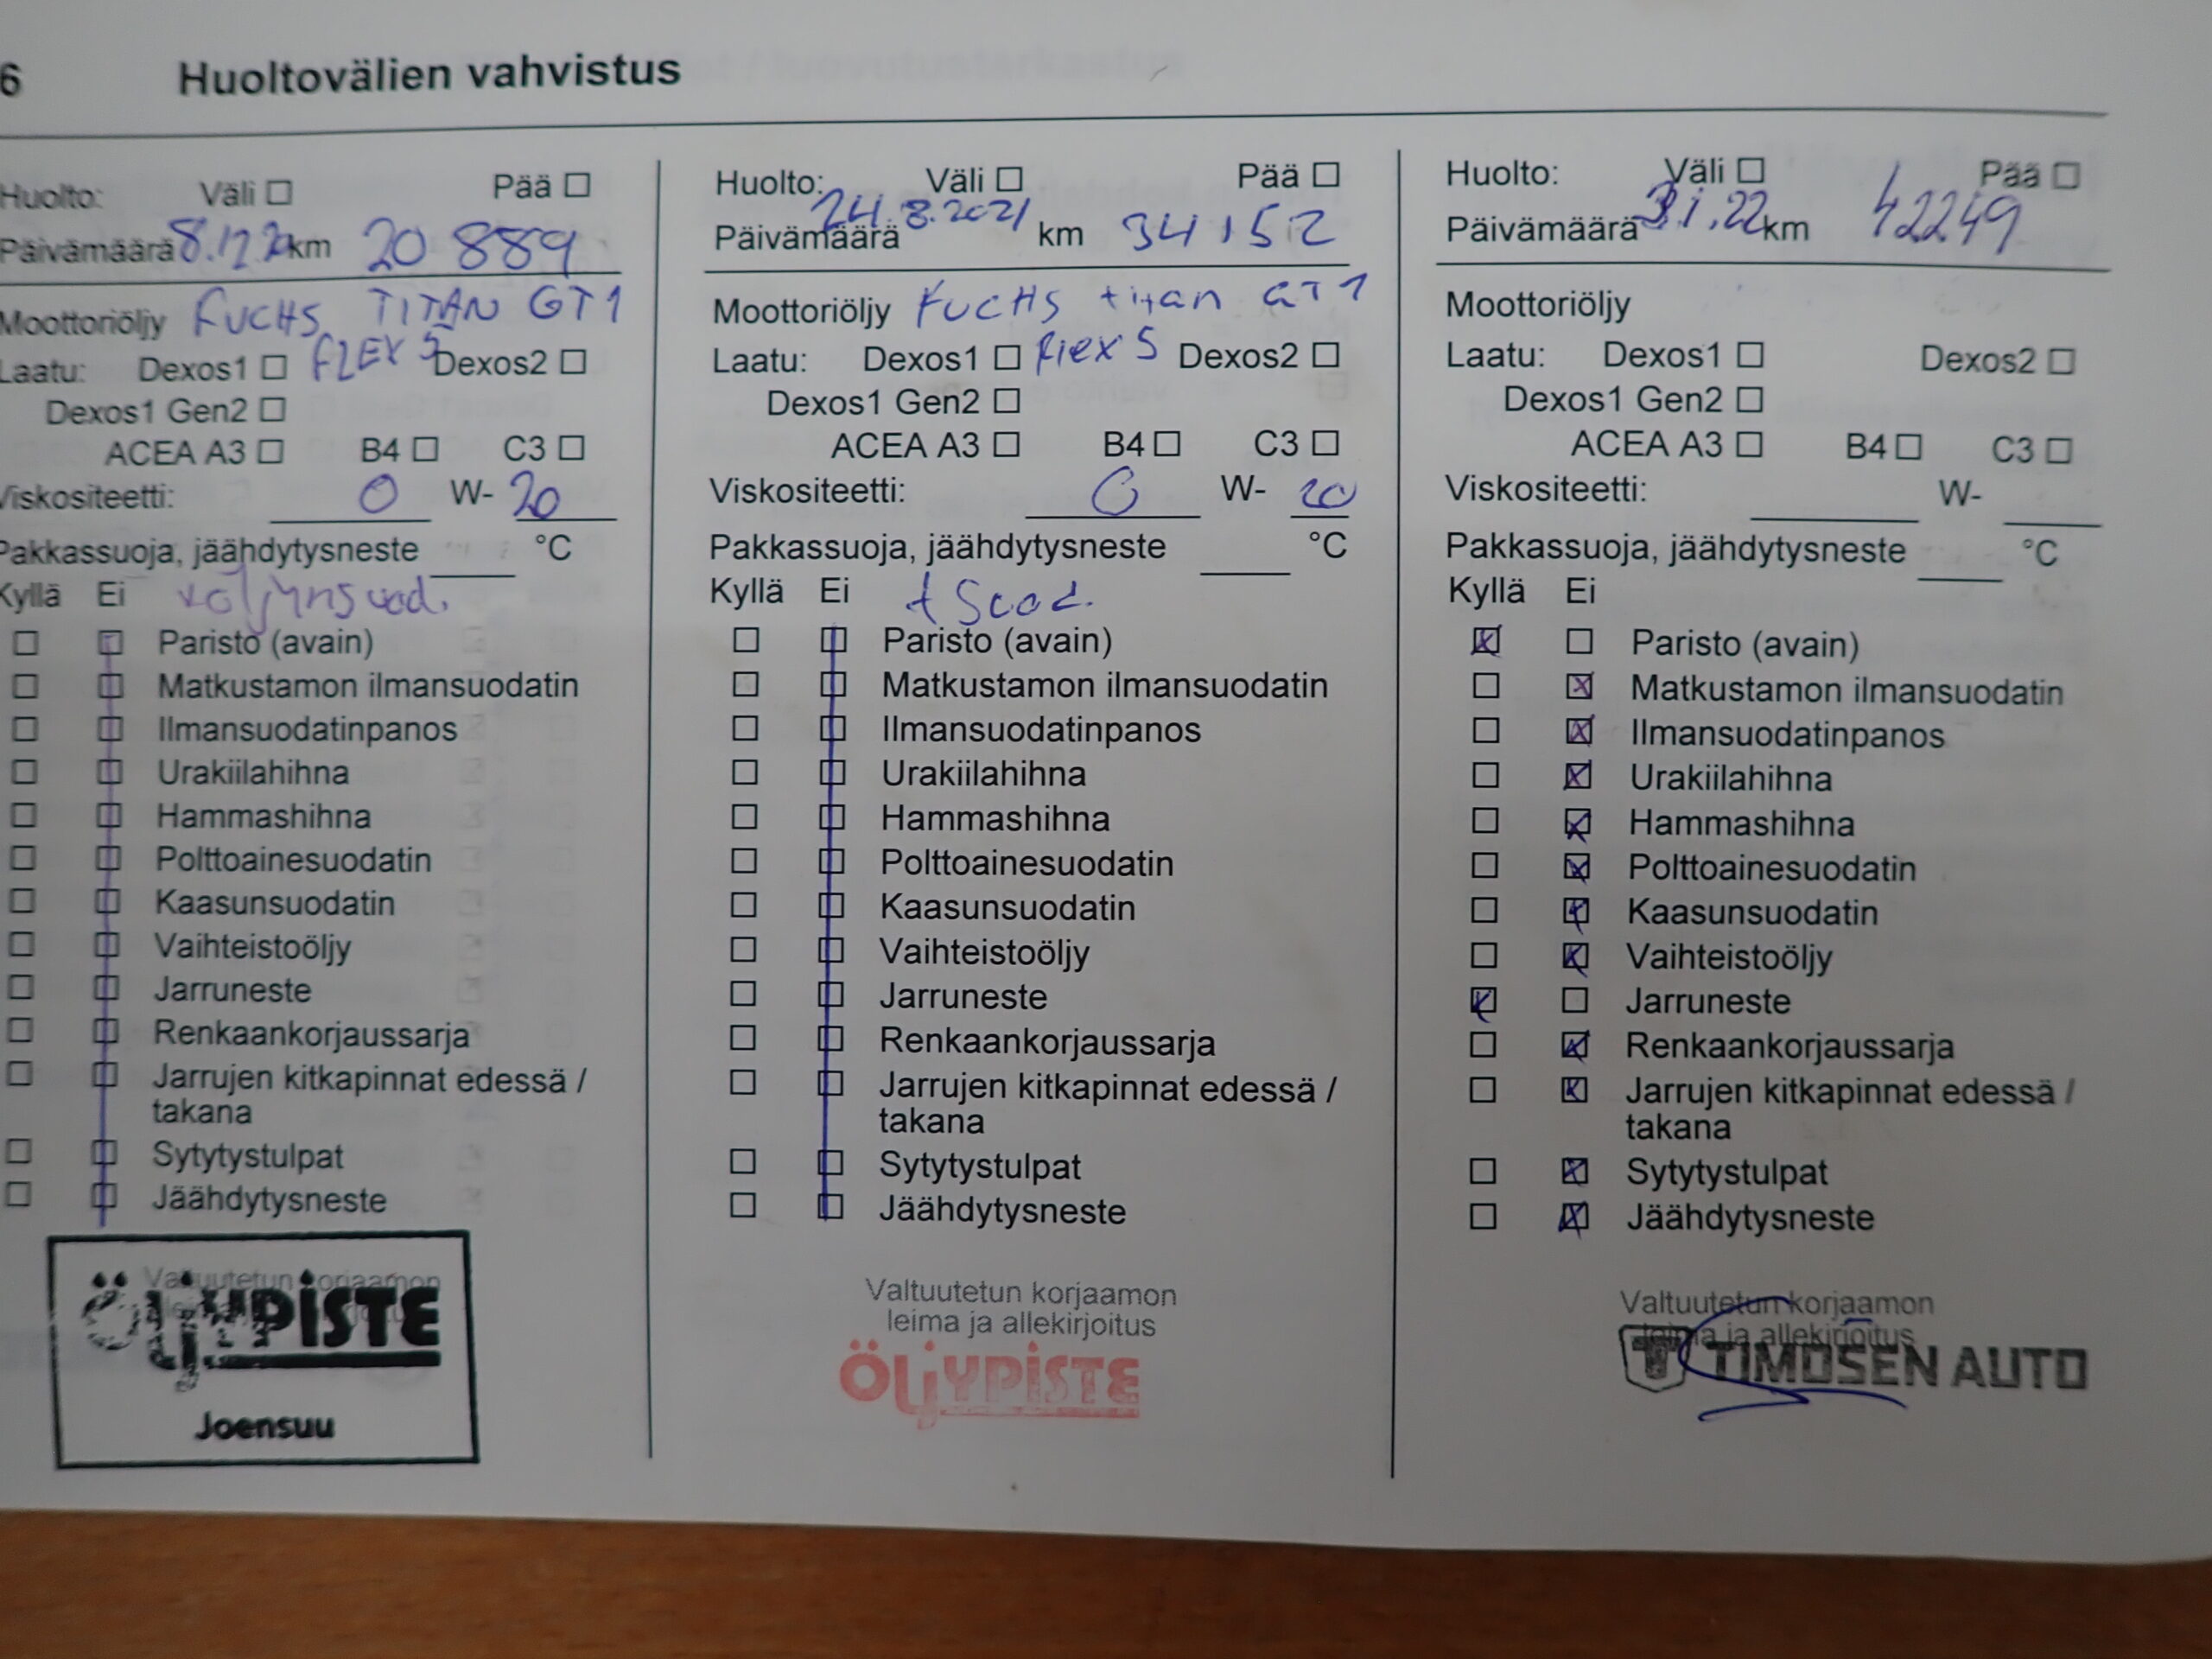 6 Huoltovälien vahvistus
Huolto: Väli ☐ Pää ☐
Päivämäärä 8.12.20 km 20 889
Moottoriöljy FUCHS TITAN GT1
FLEX 5
Laatu: Dexos1 ☐ Dexos2 ☐
Dexos1 Gen2 ☐
ACEA A3 ☐ B4 ☐ C3 ☐
Viskositeetti: 0 W- 20
Pakkassuoja, jäähdytysneste °C
Kyllä Ei +öljynsuod.
Paristo (avain)
Matkustamon ilmansuodatin
Ilmansuodatinpanos
Urakiilahihna
Hammashihna
Polttoainesuodatin
Kaasunsuodatin
Vaihteistoöljy
Jarruneste
Renkaankorjaussarja
Jarrujen kitkapinnat edessä /
takana
Sytytystulpat
Jäähdytysneste
Valtuutetun korjaamon
ÖLJYPISTE
Joensuu
Huolto: Väli ☐ Pää ☐
Päivämäärä 24.8.2021 km 34152
Moottoriöljy FUCHS titan GT1
flex 5
Laatu: Dexos1 ☐ Dexos2 ☐
Dexos1 Gen2 ☐
ACEA A3 ☐ B4 ☐ C3 ☐
Viskositeetti: 0 W- 20
Pakkassuoja, jäähdytysneste °C
Kyllä Ei + Suod.
Paristo (avain)
Matkustamon ilmansuodatin
Ilmansuodatinpanos
Urakiilahihna
Hammashihna
Polttoainesuodatin
Kaasunsuodatin
Vaihteistoöljy
Jarruneste
Renkaankorjaussarja
Jarrujen kitkapinnat edessä /
takana
Sytytystulpat
Jäähdytysneste
Valtuutetun korjaamon
leima ja allekirjoitus
ÖLJYPISTE
Huolto: Väli ☐ Pää ☐
Päivämäärä 3.1.22 km 42249
Moottoriöljy
Laatu: Dexos1 ☐ Dexos2 ☐
Dexos1 Gen2 ☐
ACEA A3 ☐ B4 ☐ C3 ☐
Viskositeetti: W-
Pakkassuoja, jäähdytysneste °C
Kyllä Ei
☒ ☐ Paristo (avain)
☐ ☒ Matkustamon ilmansuodatin
☐ ☒ Ilmansuodatinpanos
☐ ☒ Urakiilahihna
☐ ☒ Hammashihna
☐ ☒ Polttoainesuodatin
☐ ☒ Kaasunsuodatin
☐ ☒ Vaihteistoöljy
☒ ☐ Jarruneste
☐ ☒ Renkaankorjaussarja
☐ ☒ Jarrujen kitkapinnat edessä /
takana
☐ ☒ Sytytystulpat
☐ ☒ Jäähdytysneste
Valtuutetun korjaamon
leima ja allekirjoitus
TIMOSEN AUTO